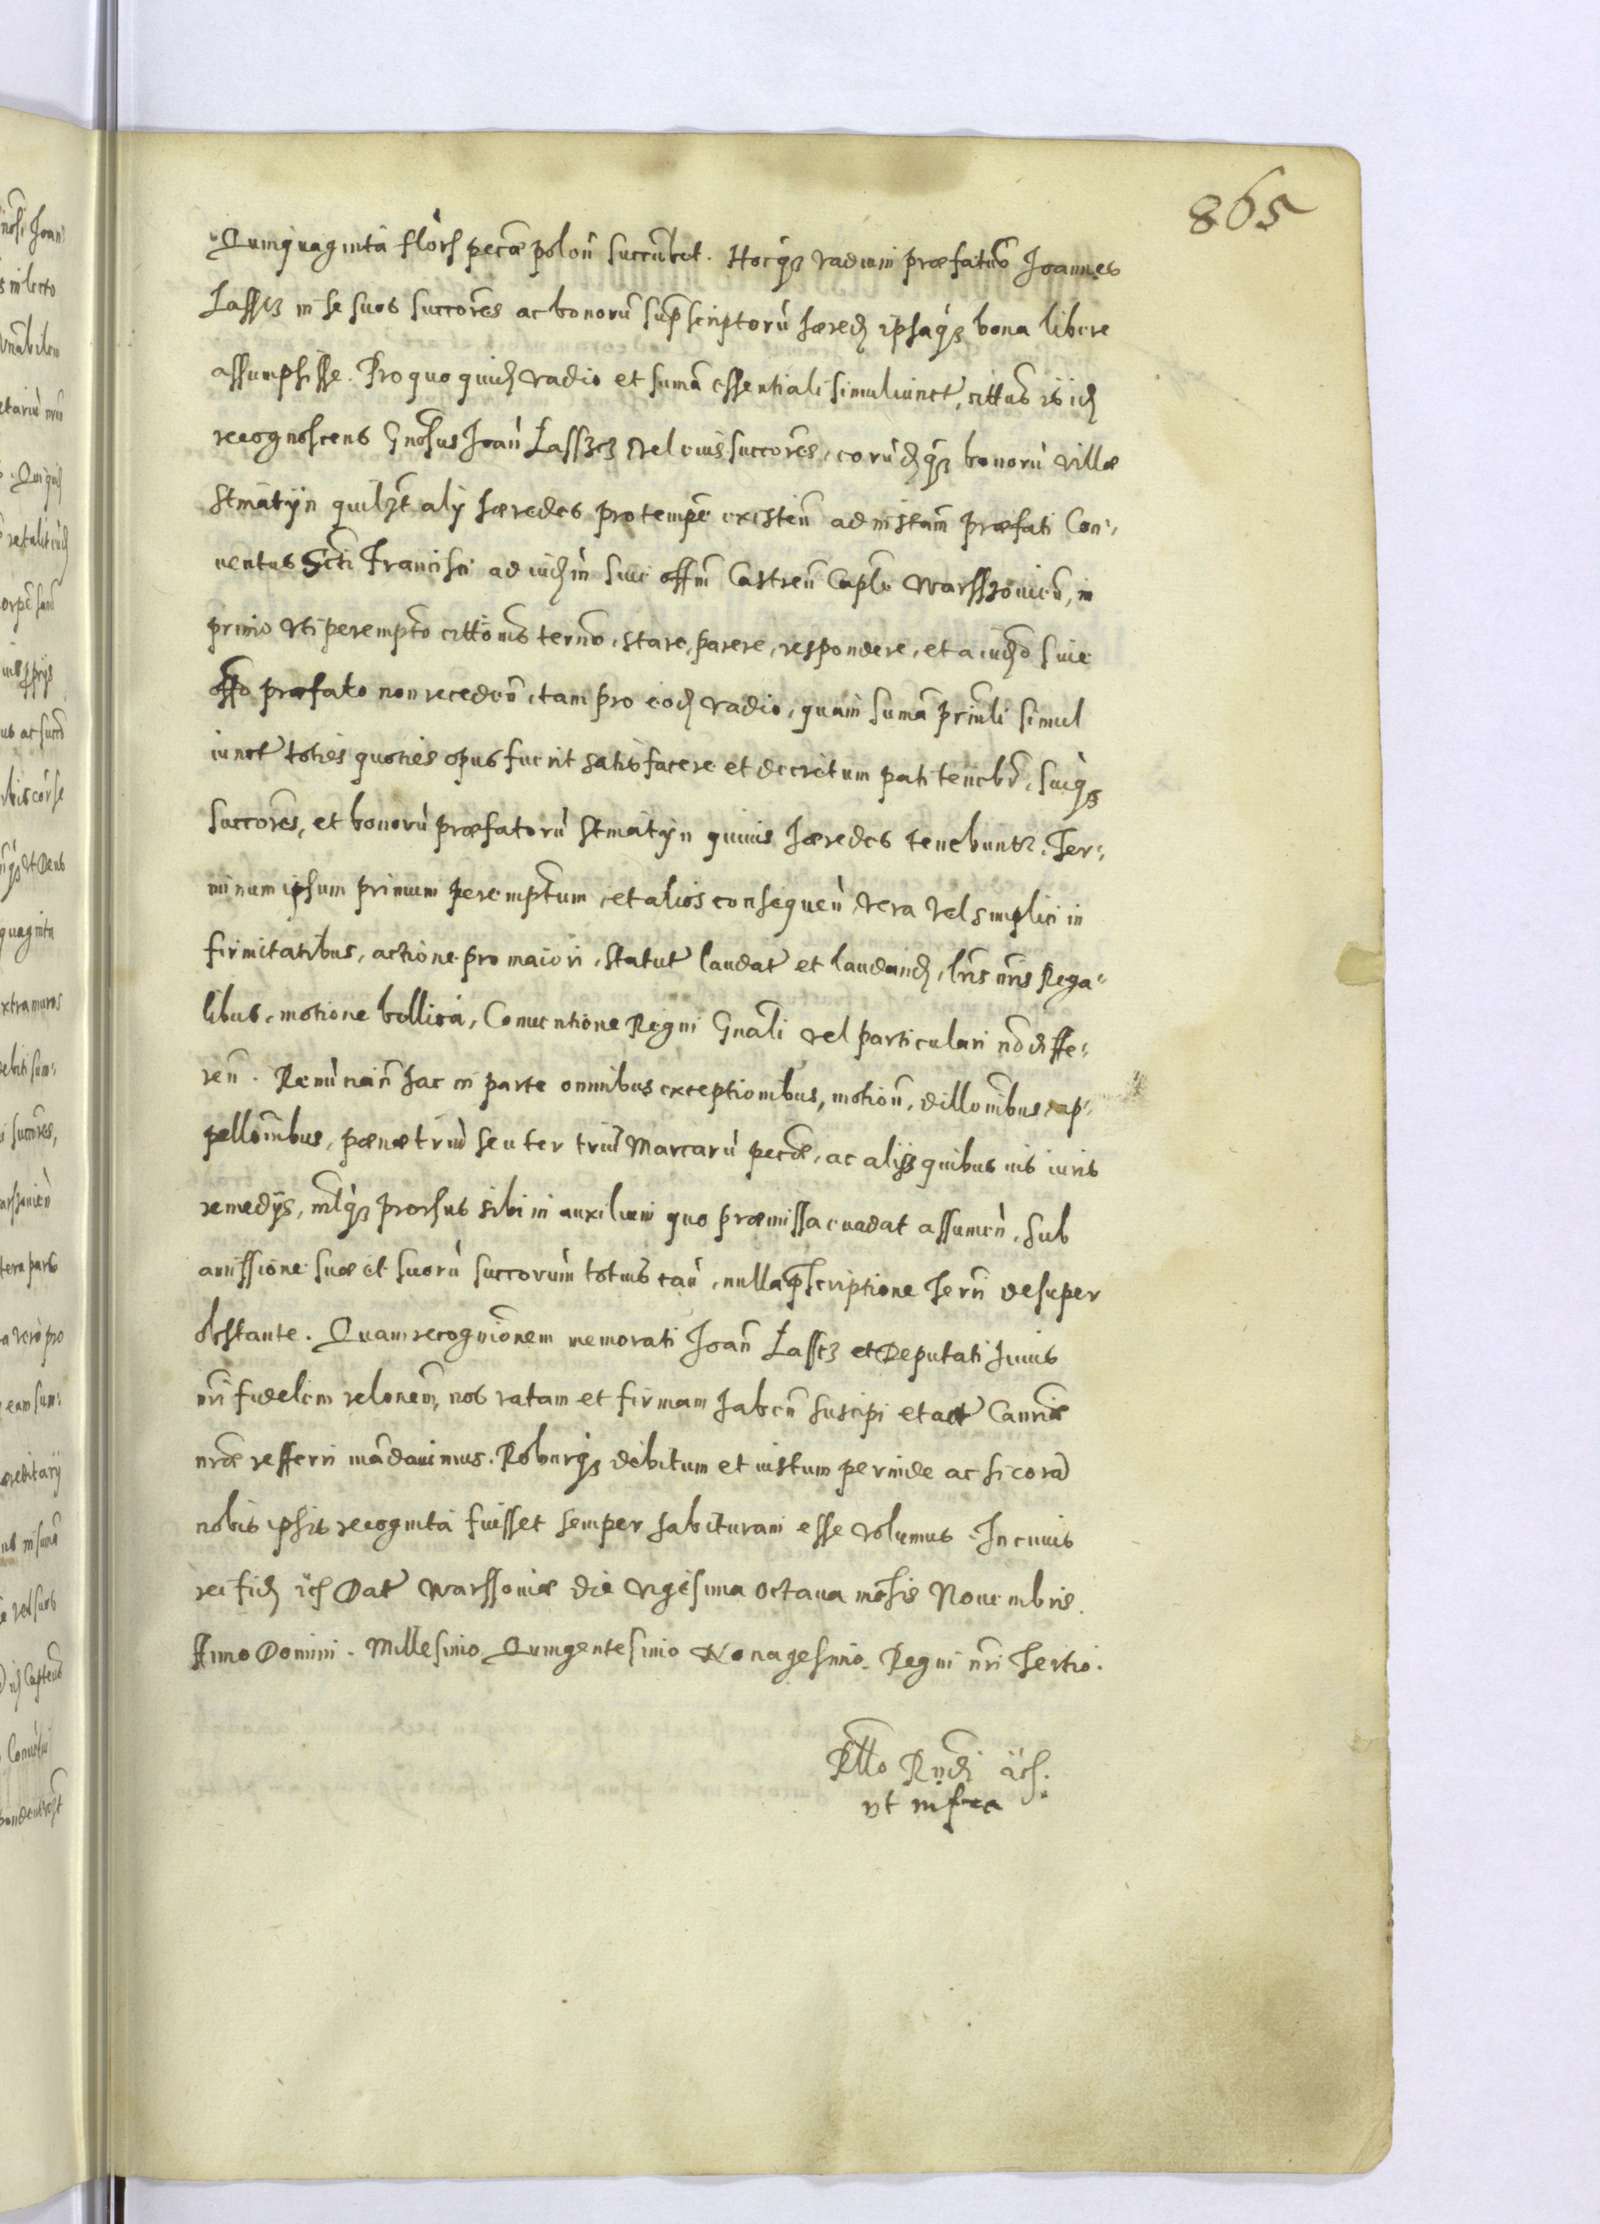 865
Quinquaginta flors pecæ polon succubet. Hocq3 vadium præfatus Joannes
Lassz in se suos succores ac bonorū supscriptorū hæred ipsaq3 bona libere
assumpsisse. Pro quo quid vadio et suma essentiali simul iunct, cittus is id
recognoscens Gnosus Joan Lassz vel eius succores, eorūdq3 bonorū villæ
Stmatyn quilzt alij hæredes pro tempe existen ad instam præfati Con-
uentus Scti Francisci ad iudm siue offm Castren Caple Warsszouien, in
primo vti perempto cittonis termo, stare, parere, respondere, et a iudo siue
offo præfato non recedn, tam pro eod vadio, quam suma prinli simul
iunct toties quoties opus fuerit satisfacere et decretum pati tenebr, suiq3
succores, et bonorū præfatorū Stmatyn quiuis hæredes tenebuntr. Ter-
minum ipsum primum peremptum, et alios consequen vera vel simplici in
firmitatibus, actione pro maiori, statut laudat et laudand, lris nris Rega-
libus, motione bellica, Conuentione Regni Gnali vel particulari nō diffe-
ren. Renūnain hac in parte omnibus exceptionibus, motion, dillonibus, ap-
pellonibus, pænæ triū seu ter triū Marcarū pecæ, ac alijs quibus uis iuris
remedijs, nllq3 prorsus sibi in auxilium quo præmissa euadat assumen. Sub
amissione suæ et suorū succorum totius cau, nulla pscriptione terri desuper
obstante. Quam recognionem memorati Joan Lassz et Deputati huius
nri fidelem relonem, nos ratam et firmam haben suscipi et act Canriæ
nræ refferri mādauimus. Roburq3 debitum et iustum perinde ac si corā
nobis ipsis recognita fuisset semper habituram esse volumus. In cuius
rei fid ić Dat Warssouiæ die vigesima octaua mēsis Nouembris.
Anno Domini. Millesimo Quingentesimo Nonagesimo. Regni nri Tertio.
Rllo Rndi ić.
vt infra